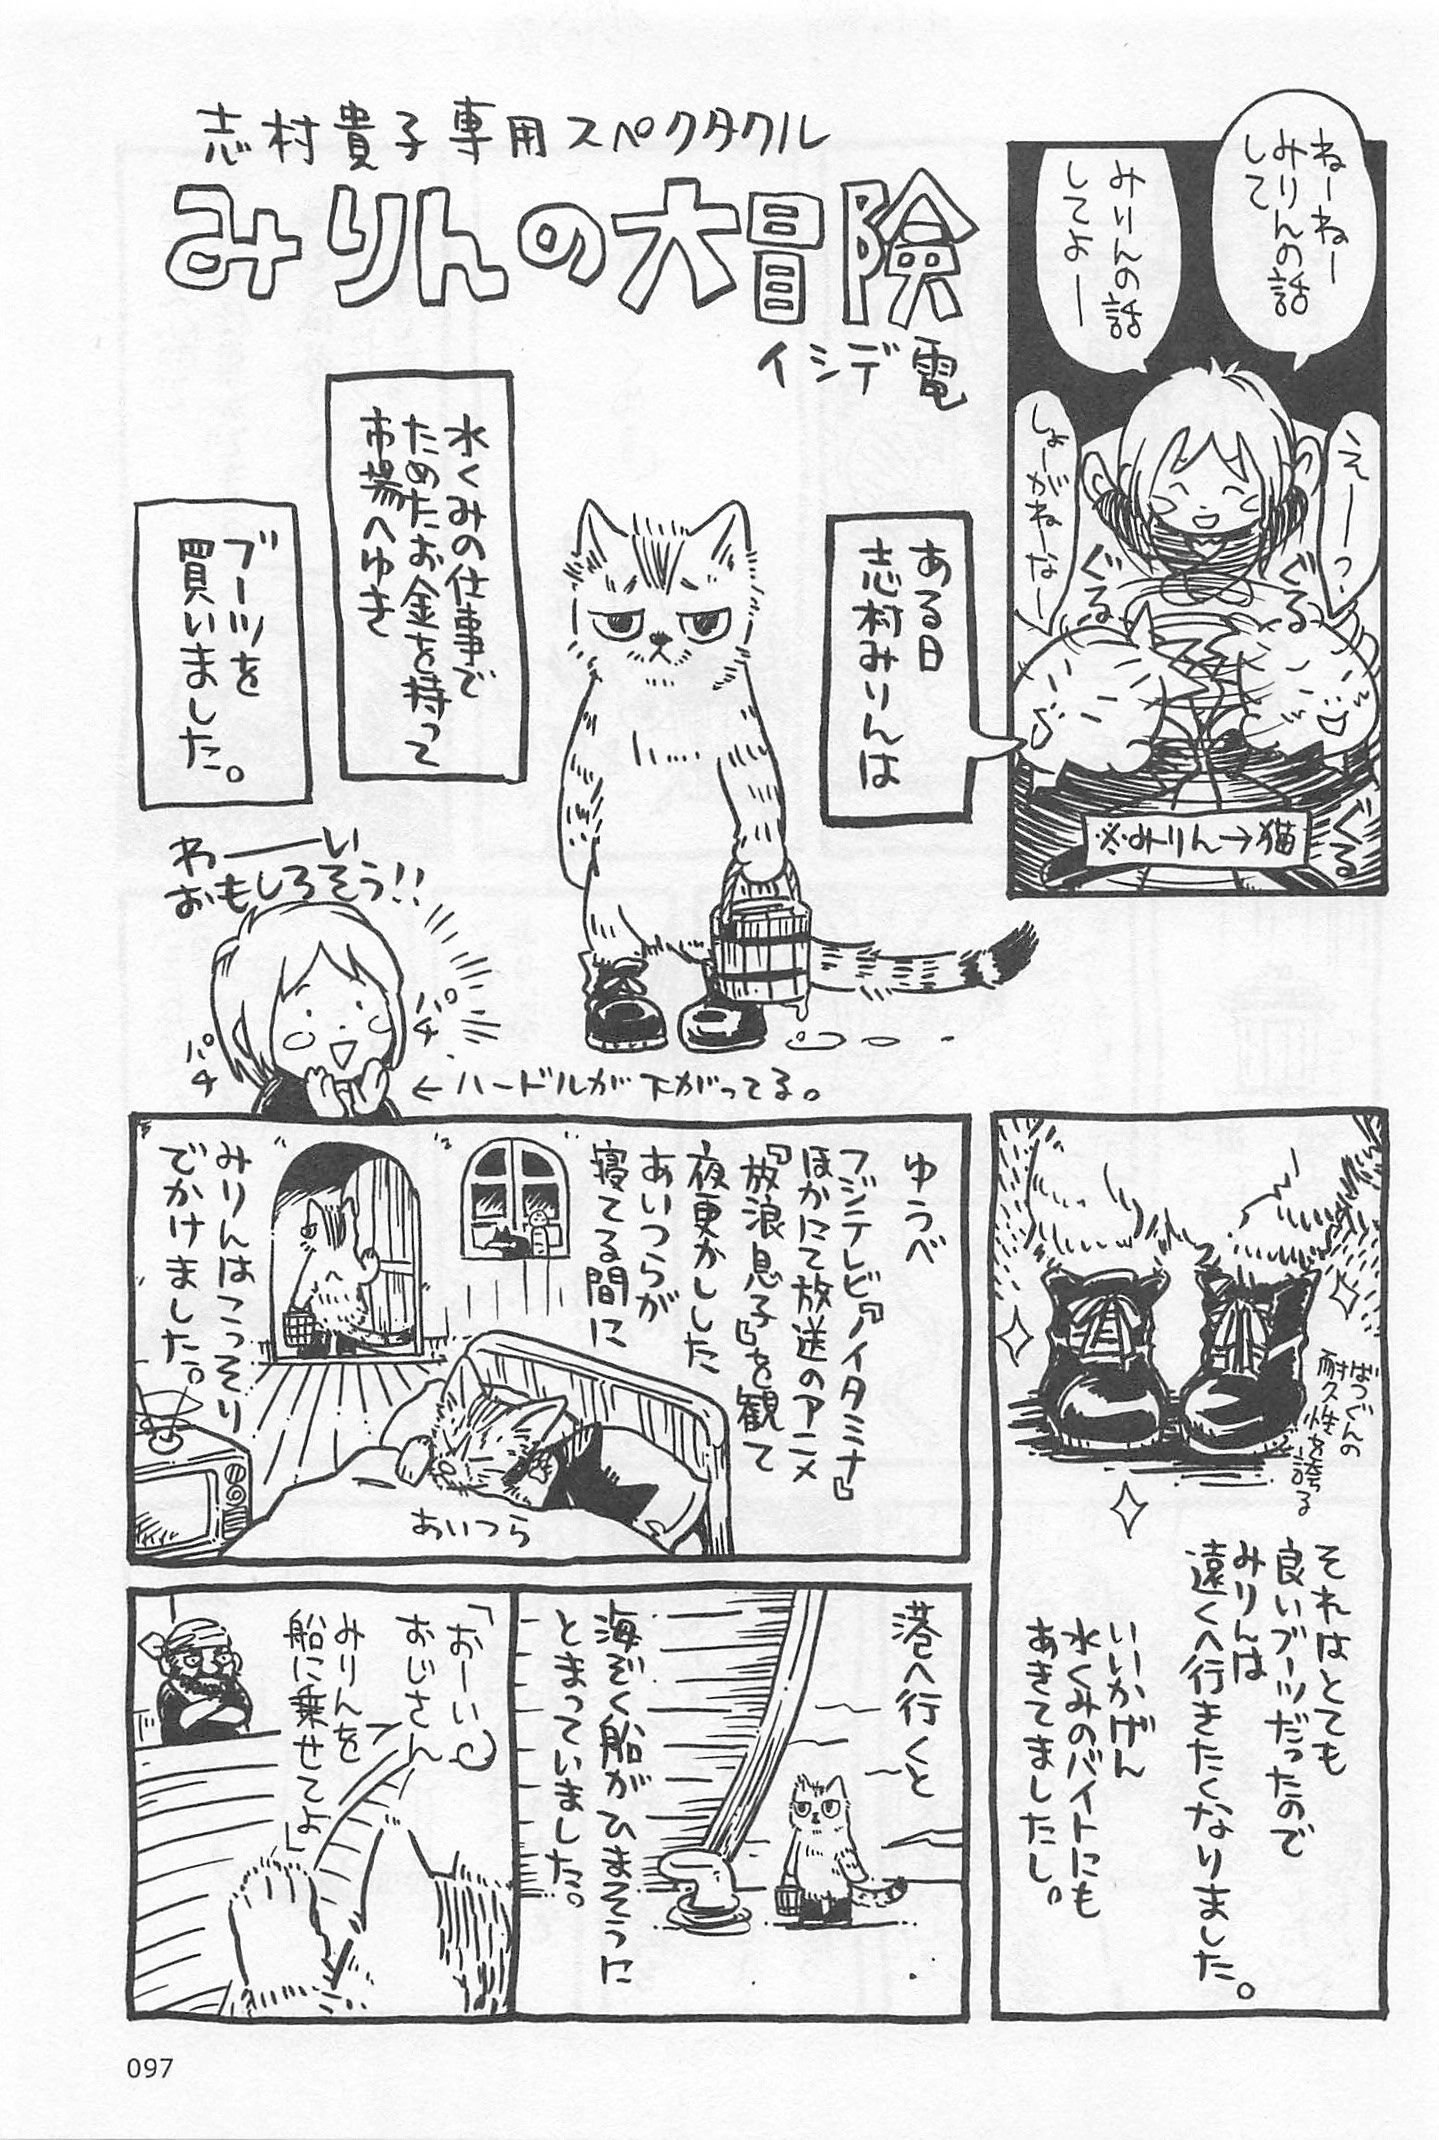 志村貴子専用スペクタクル
みりんの大冒険
イシデ電
ねーねー
みりんの話
して
みりんの話
してよー
えーっ
しょーがねーなー
ぐる
ぐる
ぐる
※みりん→猫
ある日
志村みりんは
水くみの仕事で
ためたお金を持って
市場へゆき
ブーツを
買いました。
わーーい
おもしろそう!!
パチ
パチ
←ハードルが下がってる。
ばつぐんの
耐久性を誇る
それはとても
良いブーツだったので
みりんは
遠くへ行きたくなりました。
いいかげん
水くみのバイトにも
あきてましたし。
ゆうべ
フジテレビ『ノイタミナ』
ほかにて放送のアニメ
『放浪息子』を観て
夜更かしした
あいつらが
寝てる間に
みりんはこっそり
でかけました。
あいつら
港へ行くと
海ぞく船がひまそうに
とまっていました。
「おーい
おじさん
みりんを
船に乗せてよ」
097